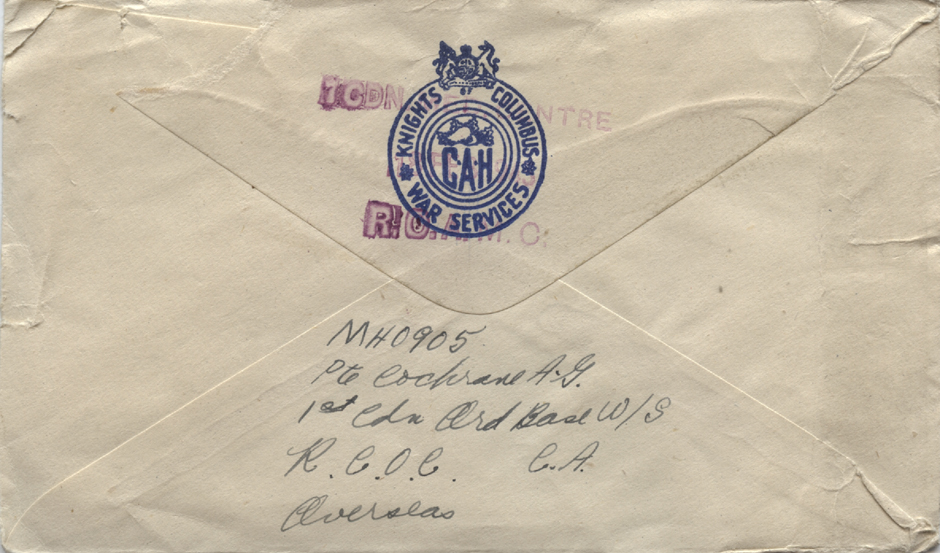 1 CDN
NTRE
KNIGHTS OF COLUMBUS
C·A·H
WAR SERVICES
R.C.A.M.C.
M40905
Pte Cochrane A.G.
1st Cdn Ord Base W/S
R.C.O.C. C.A.
Overseas